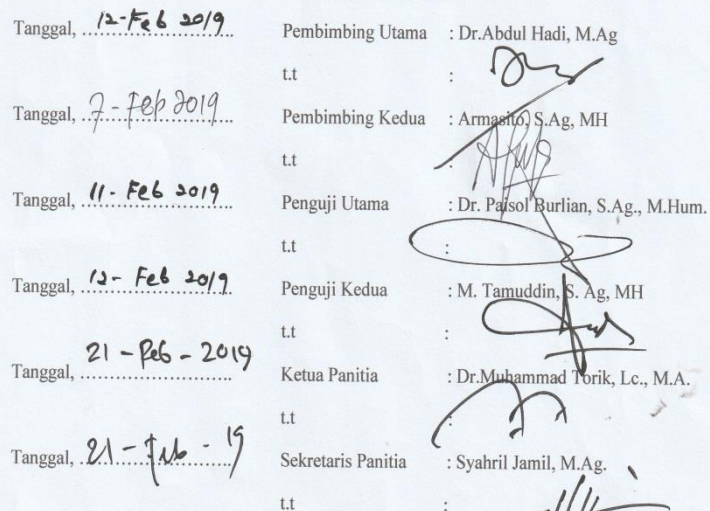 Tanggal, 12-Feb 2019 Pembimbing Utama : Dr.Abdul Hadi, M.Ag
t.t :
Tanggal, 7 - Feb 2019 Pembimbing Kedua : Armasito, S.Ag, MH
t.t :
Tanggal, 11 - Feb 2019 Penguji Utama : Dr. Paisol Burlian, S.Ag., M.Hum.
t.t :
Tanggal, 12 - Feb 2019 Penguji Kedua : M. Tamuddin, S. Ag, MH
t.t :
Tanggal, 21 - Feb - 2019 Ketua Panitia : Dr.Muhammad Torik, Lc., M.A.
t.t :
Tanggal, 21 - Feb - 19 Sekretaris Panitia : Syahril Jamil, M.Ag.
t.t :